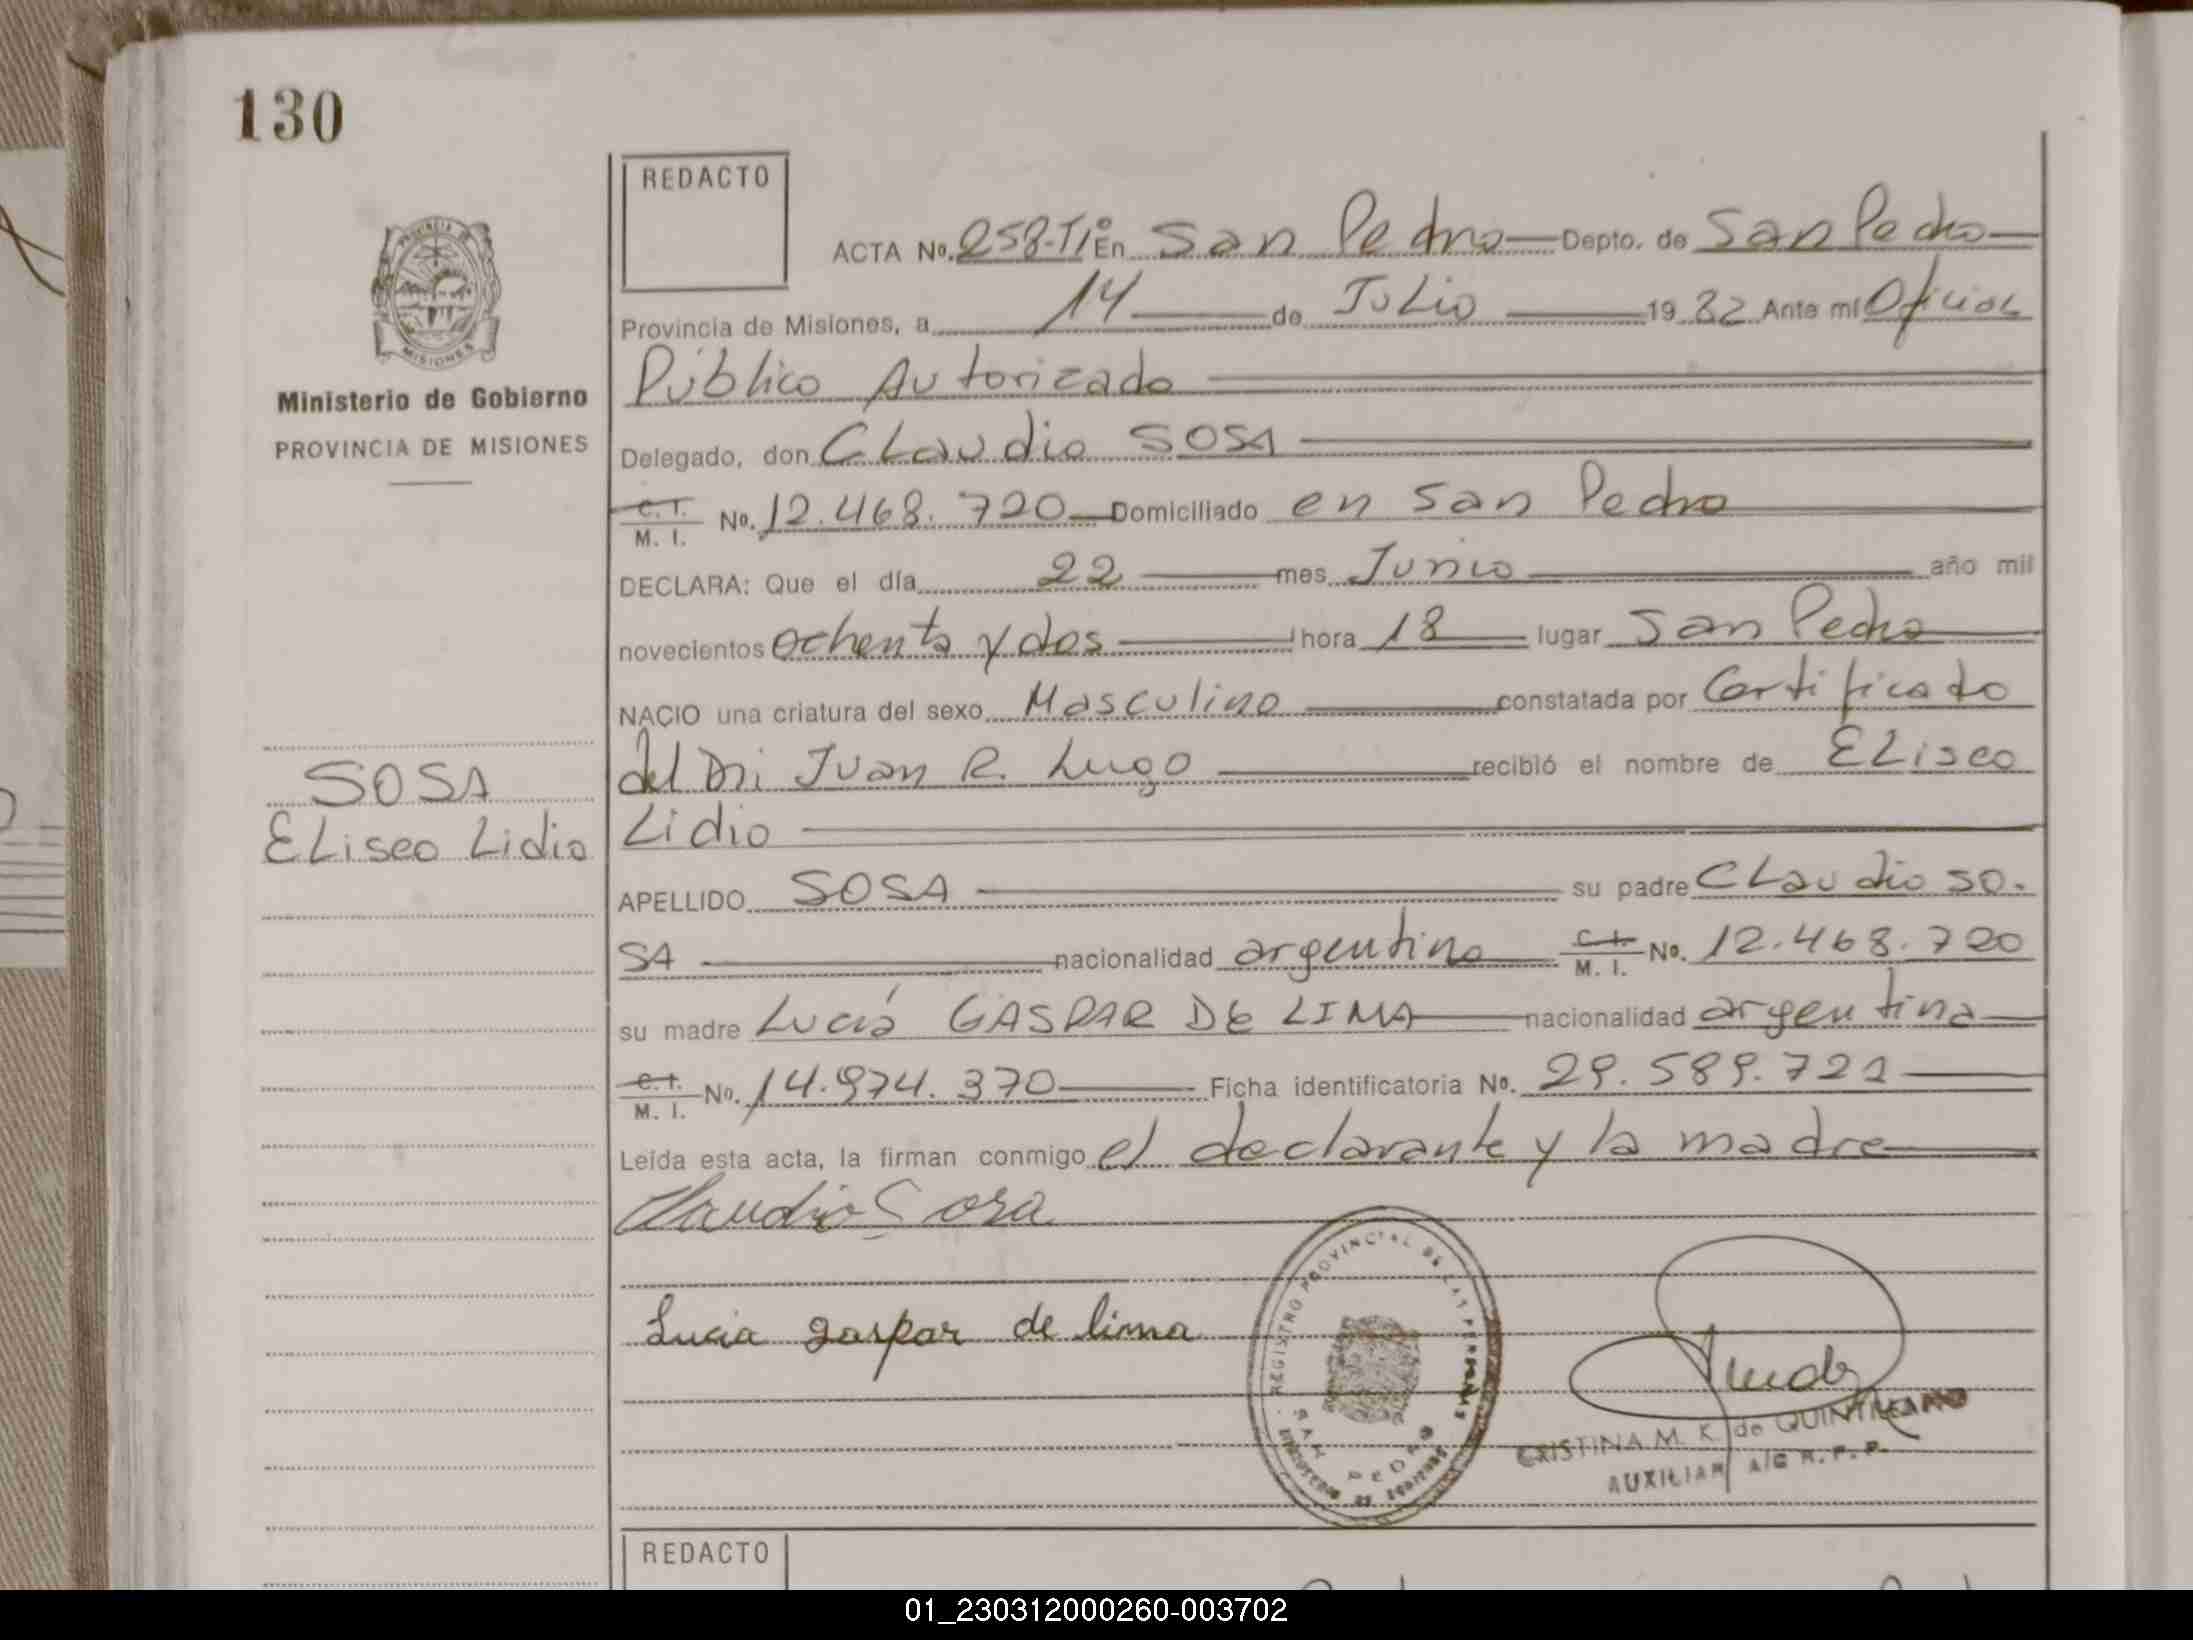 130
REDACTO
ACTA Nº. 258-Tº En San Pedro Depto. de San Pedro
Provincia de Misiones, a 14 de Julio 1982 Ante mí Oficial
Público Autorizado
Ministerio de Gobierno
PROVINCIA DE MISIONES
Delegado, don Claudio SOSA
C. I.
M. I. Nº. 12.468.720 Domiciliado en San Pedro
DECLARA: Que el día 22 mes Junio año mil
novecientos ochenta y dos hora 18 lugar San Pedro
NACIO una criatura del sexo Masculino constatada por Certificado
del Dr. Juan R. Lugo recibió el nombre de Eliseo
SOSA
Eliseo Lidio
Lidio
APELLIDO SOSA su padre Claudio SO-
SA nacionalidad argentino C. I.
M. I. Nº. 12.468.720
su madre Lucía GASPAR DE LIMA nacionalidad argentina
C. I.
M. I. Nº. 14.974.370 Ficha identificatoria Nº. 29.589.721
Leída esta acta, la firman conmigo el declarante y la madre
Claudio Sosa
Lucia gaspar de lima
REGISTRO PROVINCIAL DE LAS PERSONAS
SAN PEDRO
CRISTINA M. K. de QUINTANO
AUXILIAR A/C R. P. P.
REDACTO
01_230312000260-003702